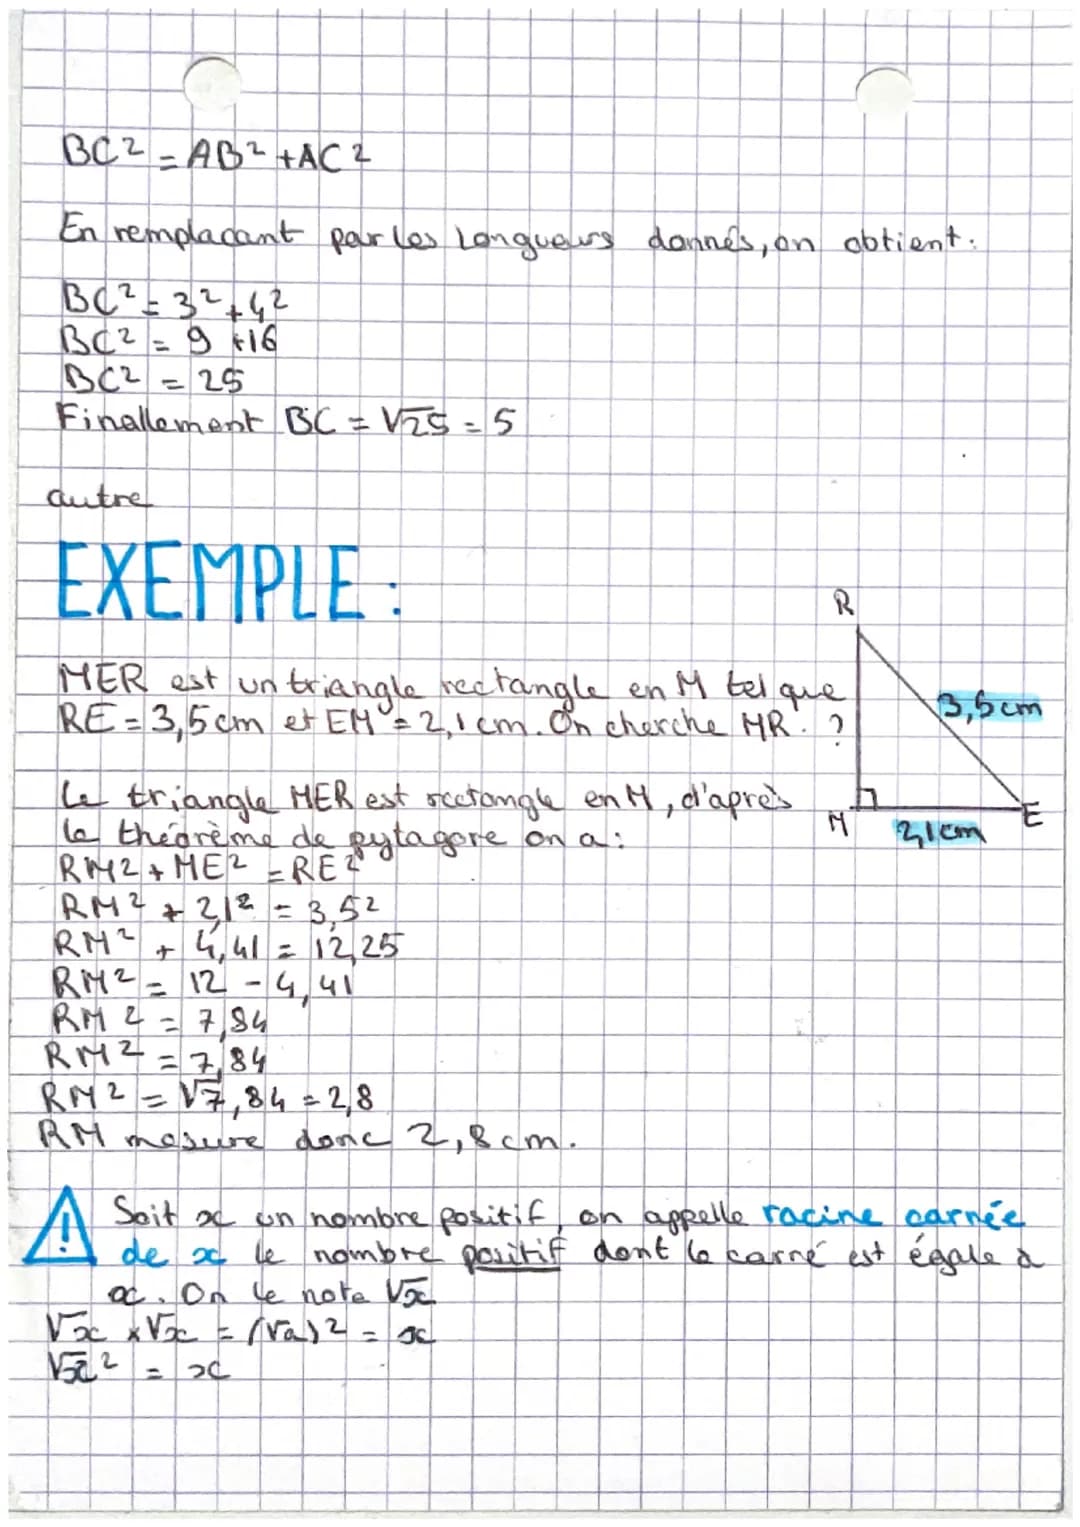 BC² = AB² + AC²
En remplacant par les longueurs donnés, on obtient :
BC² = 3² + 4²
BC² = 9 + 16
BC² = 25
Finallement BC = √25 = 5
autre
EXEMPLE :
R
MER est un triangle rectangle en M tel que
RE = 3,5 cm et EM = 2,1 cm. On cherche MR. ?
3,5 cm
Le triangle MER est rectangle en M, d'après
M
2,1 cm
E
le théorème de pytagore on a :
RM² + ME² = RE²
RM² + 2,1² = 3,5²
RM² + 4,41 = 12,25
RM² = 12 - 4,41
RM² = 7,84
RM² = 7,84
RM² = √7,84 = 2,8
RM mesure donc 2,8 cm.
! Soit x un nombre positif, on appelle racine carrée
de x le nombre positif dont le carré est égale à
x. On le note √x
√x × √x = (√a)² = x
√x² = x